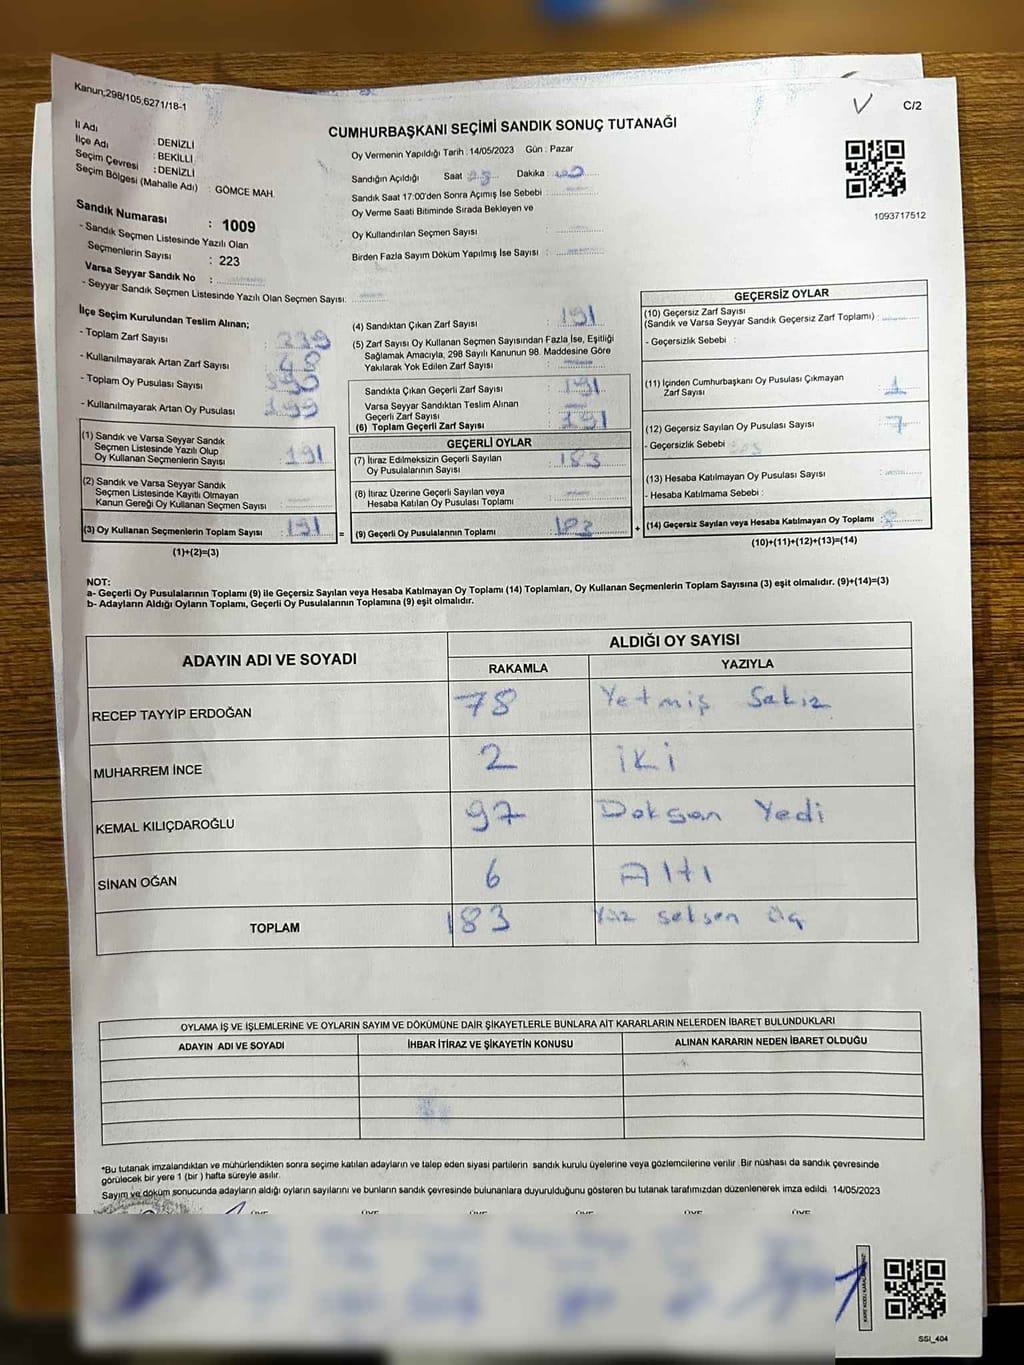 Kanun;298/105,6271/18-1
C/2
CUMHURBAŞKANI SEÇİMİ SANDIK SONUÇ TUTANAĞI
İl Adı : DENİZLİ
İlçe Adı : BEKİLLİ
Seçim Çevresi : DENİZLİ
Seçim Bölgesi (Mahalle Adı) : GÖMCE MAH.
Sandık Numarası : 1009
- Sandık Seçmen Listesinde Yazılı Olan
Seçmenlerin Sayısı : 223
Varsa Seyyar Sandık No :
- Seyyar Sandık Seçmen Listesinde Yazılı Olan Seçmen Sayısı:
Oy Vermenin Yapıldığı Tarih : 14/05/2023 Gün : Pazar
Sandığın Açıldığı Saat Dakika :
Sandık Saat 17:00'den Sonra Açımış İse Sebebi :
Oy Verme Saati Bitiminde Sırada Bekleyen ve
Oy Kullandırılan Seçmen Sayısı :
Birden Fazla Sayım Döküm Yapılmış İse Sayısı :
1093717512
İlçe Seçim Kurulundan Teslim Alınan;
- Toplam Zarf Sayısı :
- Kullanılmayarak Artan Zarf Sayısı :
- Toplam Oy Pusulası Sayısı :
- Kullanılmayarak Artan Oy Pusulası :
(1) Sandık ve Varsa Seyyar Sandık
Seçmen Listesinde Yazılı Olup
Oy Kullanan Seçmenlerin Sayısı : 191
(2) Sandık ve Varsa Seyyar Sandık
Seçmen Listesinde Kayıtlı Olmayan
Kanun Gereği Oy Kullanan Seçmen Sayısı :
(3) Oy Kullanan Seçmenlerin Toplam Sayısı : 191
(1)+(2)=(3)
=
(4) Sandıktan Çıkan Zarf Sayısı : 191
(5) Zarf Sayısı Oy Kullanan Seçmen Sayısından Fazla İse, Eşitliği
Sağlamak Amacıyla, 298 Sayılı Kanunun 98. Maddesine Göre
Yakılarak Yok Edilen Zarf Sayısı :
Sandıkta Çıkan Geçerli Zarf Sayısı : 191
Varsa Seyyar Sandıktan Teslim Alınan
Geçerli Zarf Sayısı :
(6) Toplam Geçerli Zarf Sayısı : 191
GEÇERLİ OYLAR
(7) İtiraz Edilmeksizin Geçerli Sayılan
Oy Pusulalarının Sayısı : 183
(8) İtiraz Üzerine Geçerli Sayılan veya
Hesaba Katılan Oy Pusulası Toplamı :
(9) Geçerli Oy Pusulalarının Toplamı : 183
+
GEÇERSİZ OYLAR
(10) Geçersiz Zarf Sayısı
(Sandık ve Varsa Seyyar Sandık Geçersiz Zarf Toplamı) :
- Geçersizlik Sebebi :
(11) İçinden Cumhurbaşkanı Oy Pusulası Çıkmayan
Zarf Sayısı : 1
(12) Geçersiz Sayılan Oy Pusulası Sayısı : 7
- Geçersizlik Sebebi :
(13) Hesaba Katılmayan Oy Pusulası Sayısı :
- Hesaba Katılmama Sebebi :
(14) Geçersiz Sayılan veya Hesaba Katılmayan Oy Toplamı : 8
(10)+(11)+(12)+(13)=(14)
NOT:
a- Geçerli Oy Pusulalarının Toplamı (9) ile Geçersiz Sayılan veya Hesaba Katılmayan Oy Toplamı (14) Toplamları, Oy Kullanan Seçmenlerin Toplam Sayısına (3) eşit olmalıdır. (9)+(14)=(3)
b- Adayların Aldığı Oyların Toplamı, Geçerli Oy Pusulalarının Toplamına (9) eşit olmalıdır.
ADAYIN ADI VE SOYADI ALDIĞI OY SAYISI
RAKAMLA YAZIYLA
RECEP TAYYİP ERDOĞAN 78 Yetmiş Sekiz
MUHARREM İNCE 2 iki
KEMAL KILIÇDAROĞLU 97 Doksan Yedi
SİNAN OĞAN 6 Altı
TOPLAM 183 Yüz seksen üç
OYLAMA İŞ VE İŞLEMLERİNE VE OYLARIN SAYIM VE DÖKÜMÜNE DAİR ŞİKAYETLERLE BUNLARA AİT KARARLARIN NELERDEN İBARET BULUNDUKLARI
ADAYIN ADI VE SOYADI İHBAR İTİRAZ VE ŞİKAYETİN KONUSU ALINAN KARARIN NEDEN İBARET OLDUĞU
*Bu tutanak imzalandıktan ve mühürlendikten sonra seçime katılan adayların ve talep eden siyasi partilerin sandık kurulu üyelerine veya gözlemcilerine verilir. Bir nüshası da sandık çevresinde
görülecek bir yere 1 (bir ) hafta süreyle asılır.
Sayım ve döküm sonucunda adayların aldığı oyların sayılarını ve bunların sandık çevresinde bulunanlara duyurulduğunu gösteren bu tutanak tarafımızdan düzenlenerek imza edildi. 14/05/2023
ÜYE ÜYE ÜYE ÜYE ÜYE ÜYE
SSI_404